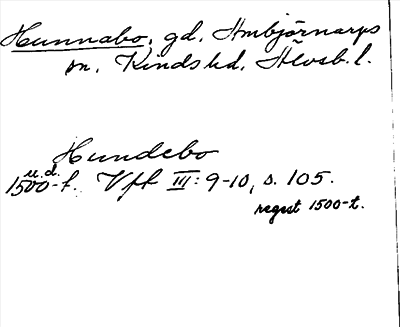 Hunnabo, gd, Ambjörnarps
sn, Kinds hd, Älvsb. l.
Hundebo
u.d.
1500-t. Vft III: 9-10, s. 105.
regest 1500-t.